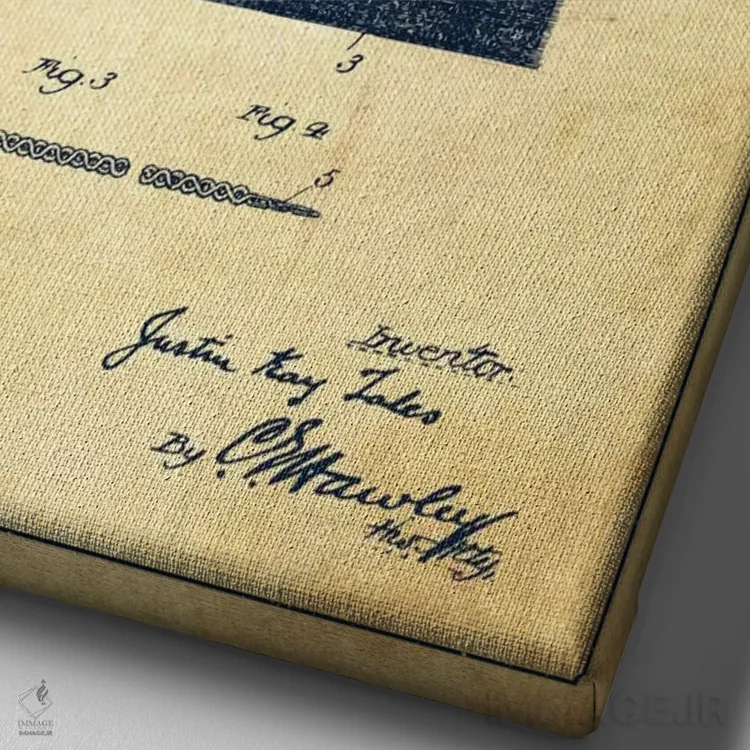 3
Fig. 3
Fig 4
5
Inventor.
Justin Kay Toles
By C. E. Hawley
his Atty.
IMMAGE
IMMAGE.IR
IMMAGE.IR